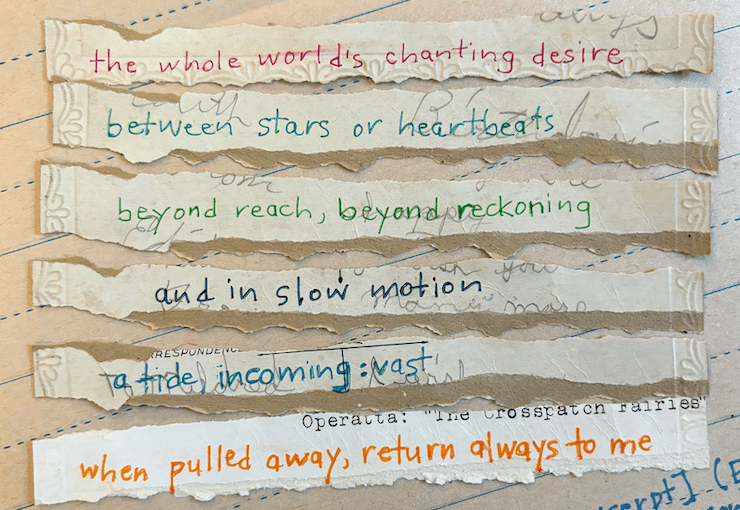 the whole world's chanting desire
between stars or heartbeats
beyond reach, beyond reckoning
you
and in slow motion
RRESPONDENC
a tide, incoming: vast
Operatta: "The Crosspatch Fairies"
when pulled away, return always to me
cerpt] (E